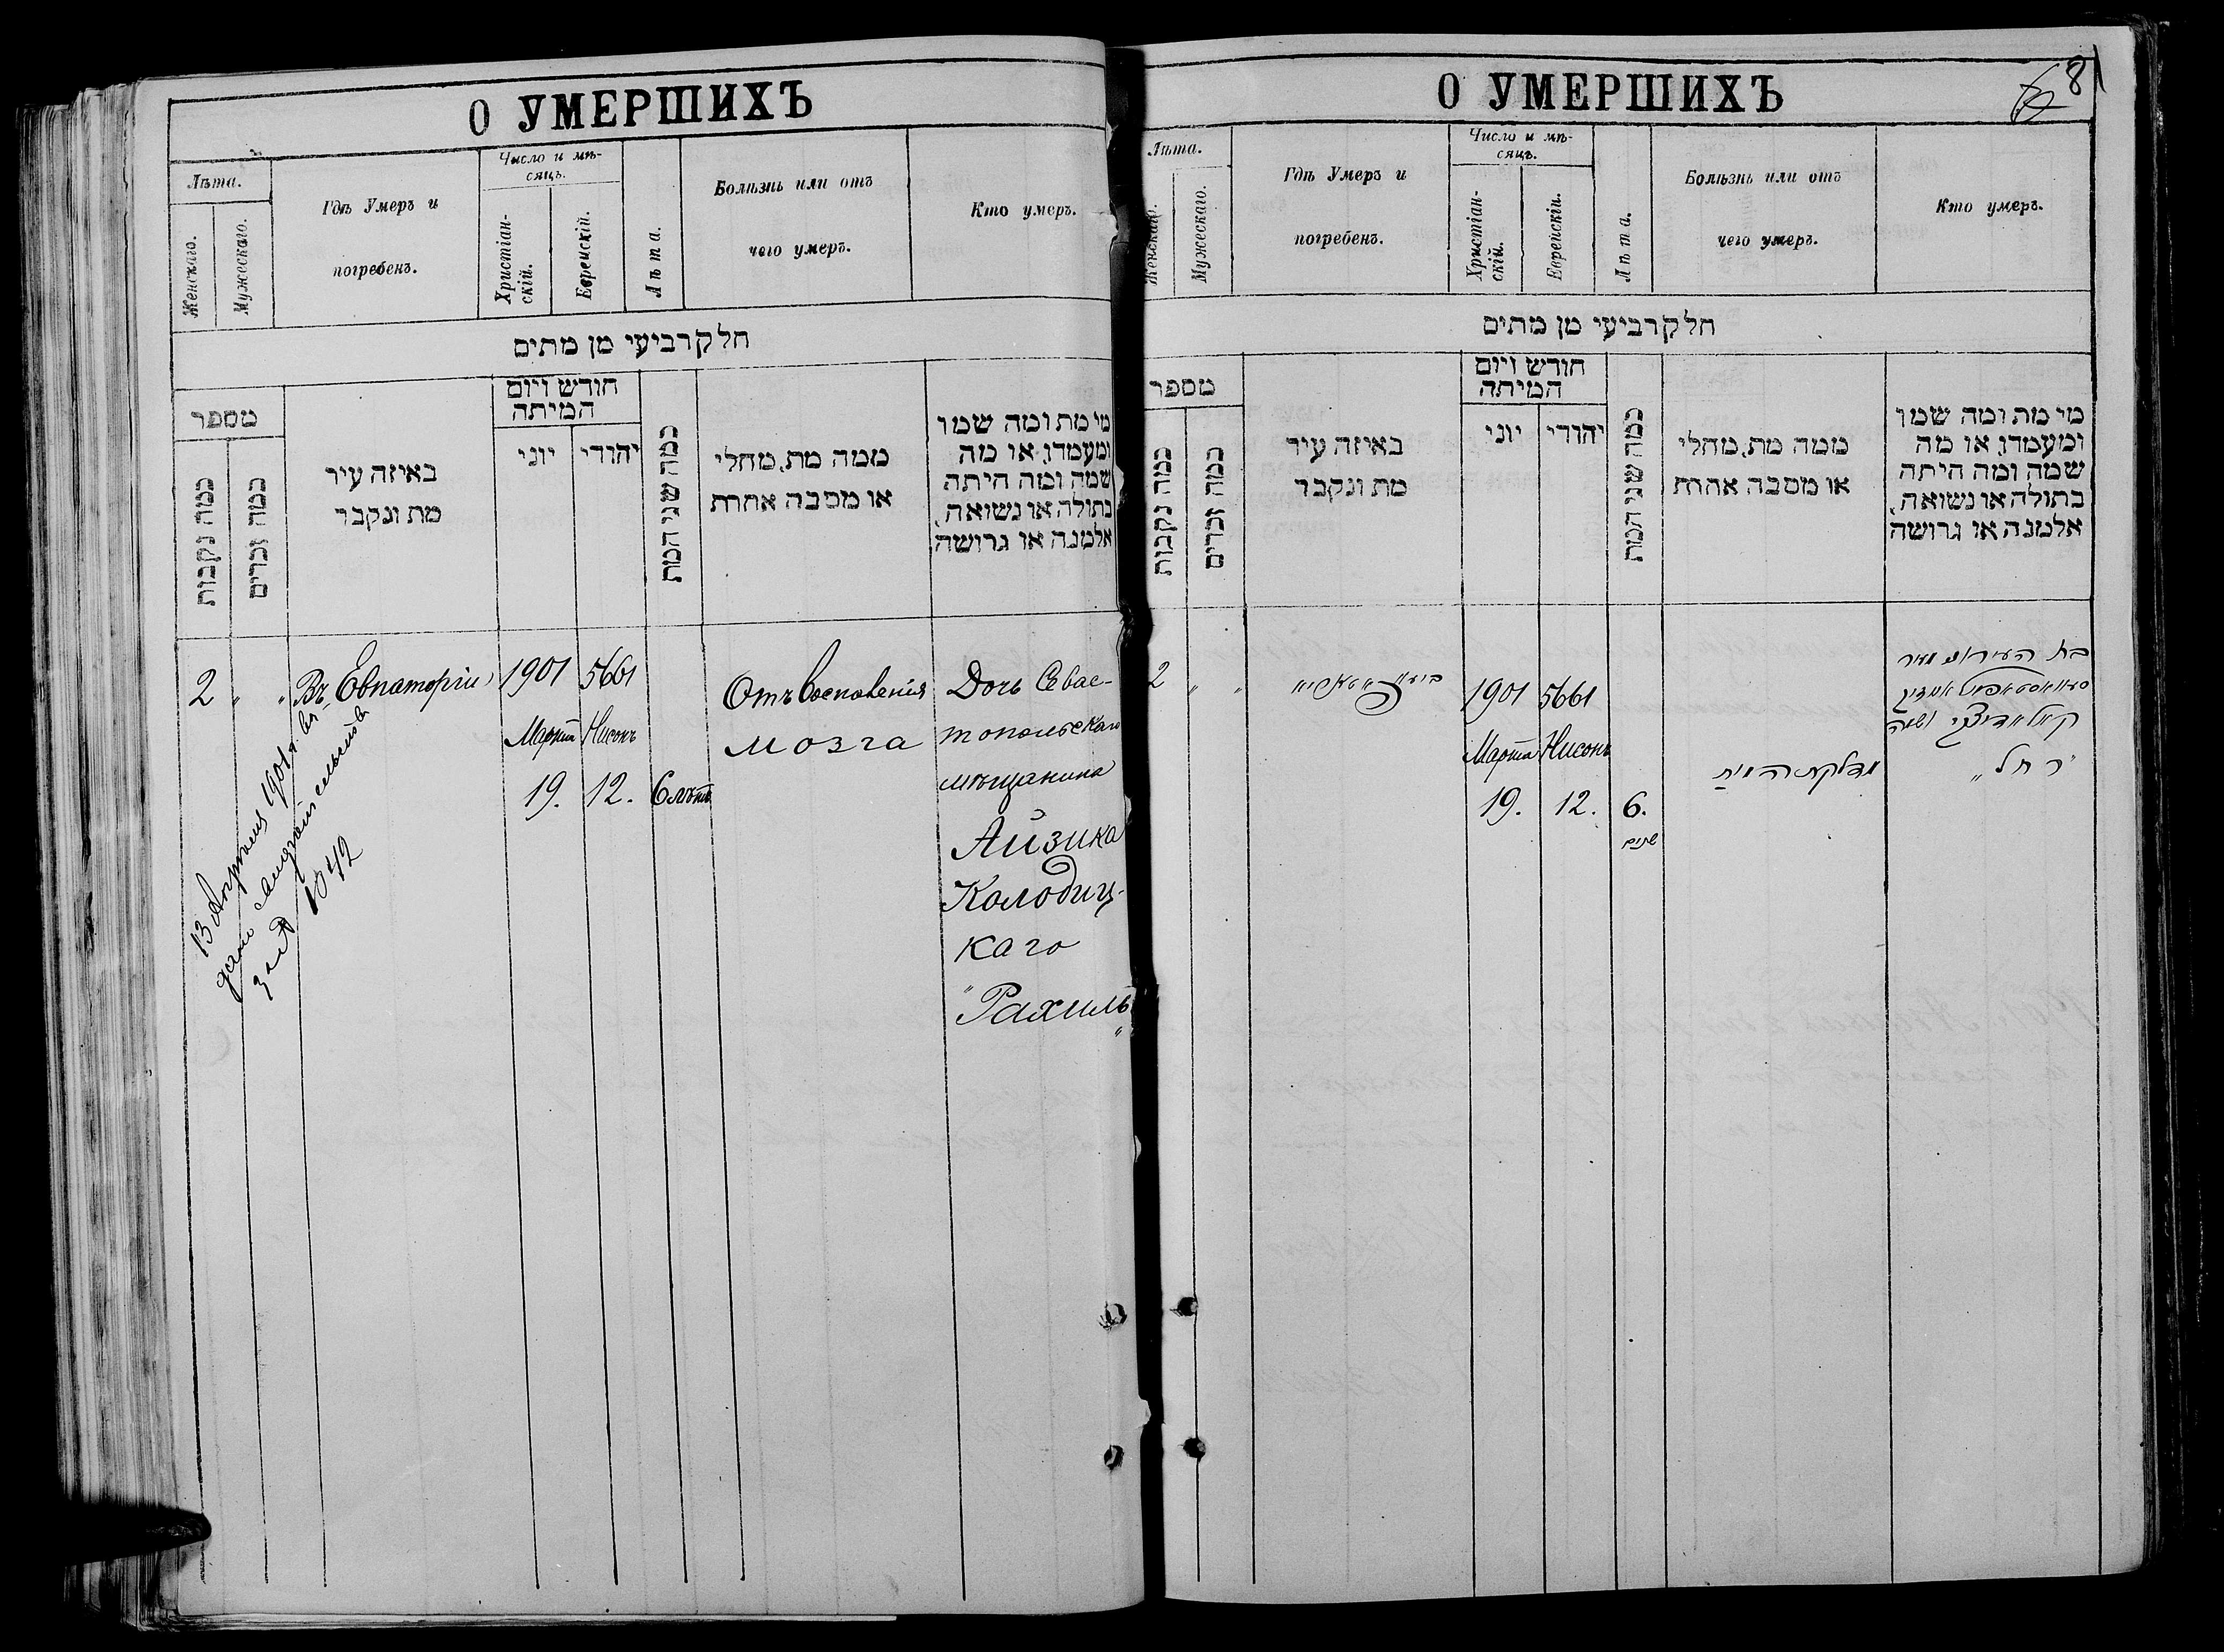 О УМЕРШИХЪ
Лѣта.
Женскаго.
Мужескаго.
Гдѣ Умеръ и
погребенъ.
Число и мѣ-
сяцъ.
Христіан-
скій.
Еврейскій.
Лѣта.
Болѣзнь или отъ
чего умеръ.
Кто умеръ.
חלק רביעי מן מתים
מספר
כמה נקבות
כמה זכרים
באיזה עיר
מת ונקבר
חודש ויום
המיתה
יוני
יהודי
כמה שני המת
ממה מת, מחלי
או מסבה אחרת
מי מת ומה שמו
ומעמדו, או מה
שמה ומה היתה
בתולה או נשואה,
אלמנה או גרושה
2 " "
Въ Евпаторіи
1901
Марта
19.
5661
Нисонъ
12.
6 лѣтъ
Отъ Воспаленія
мозга
Дочь Севас-
топольскаго
мѣщанина
Айзика
Колодиц-
каго
"Рахиль"
13 Апрѣля 1901 г.
1042
О УМЕРШИХЪ
8
Лѣта.
Женскаго.
Мужескаго.
Гдѣ Умеръ и
погребенъ.
Число и мѣ-
сяцъ.
Христіан-
скій.
Еврейскій.
Лѣта.
Болѣзнь или отъ
чего умеръ.
Кто умеръ.
חלק רביעי מן מתים
מספר
כמה נקבות
כמה זכרים
באיזה עיר
מת ונקבר
חודש ויום
המיתה
יוני
יהודי
כמה שני המת
ממה מת, מחלי
או מסבה אחרת
מי מת ומה שמו
ומעמדו, או מה
שמה ומה היתה
בתולה או נשואה,
אלמנה או גרושה
2 " "
1901
Марта
19.
5661
Нисонъ
12.
6.
שנים
מדלקת המוח
בת העירוני מעיר
סעוואסטאפול אייזיק
קאלאדיצקי ושמה
"רחל"